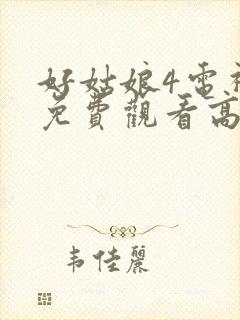 好姑娘4電視
免費觀看高
韦佳麗